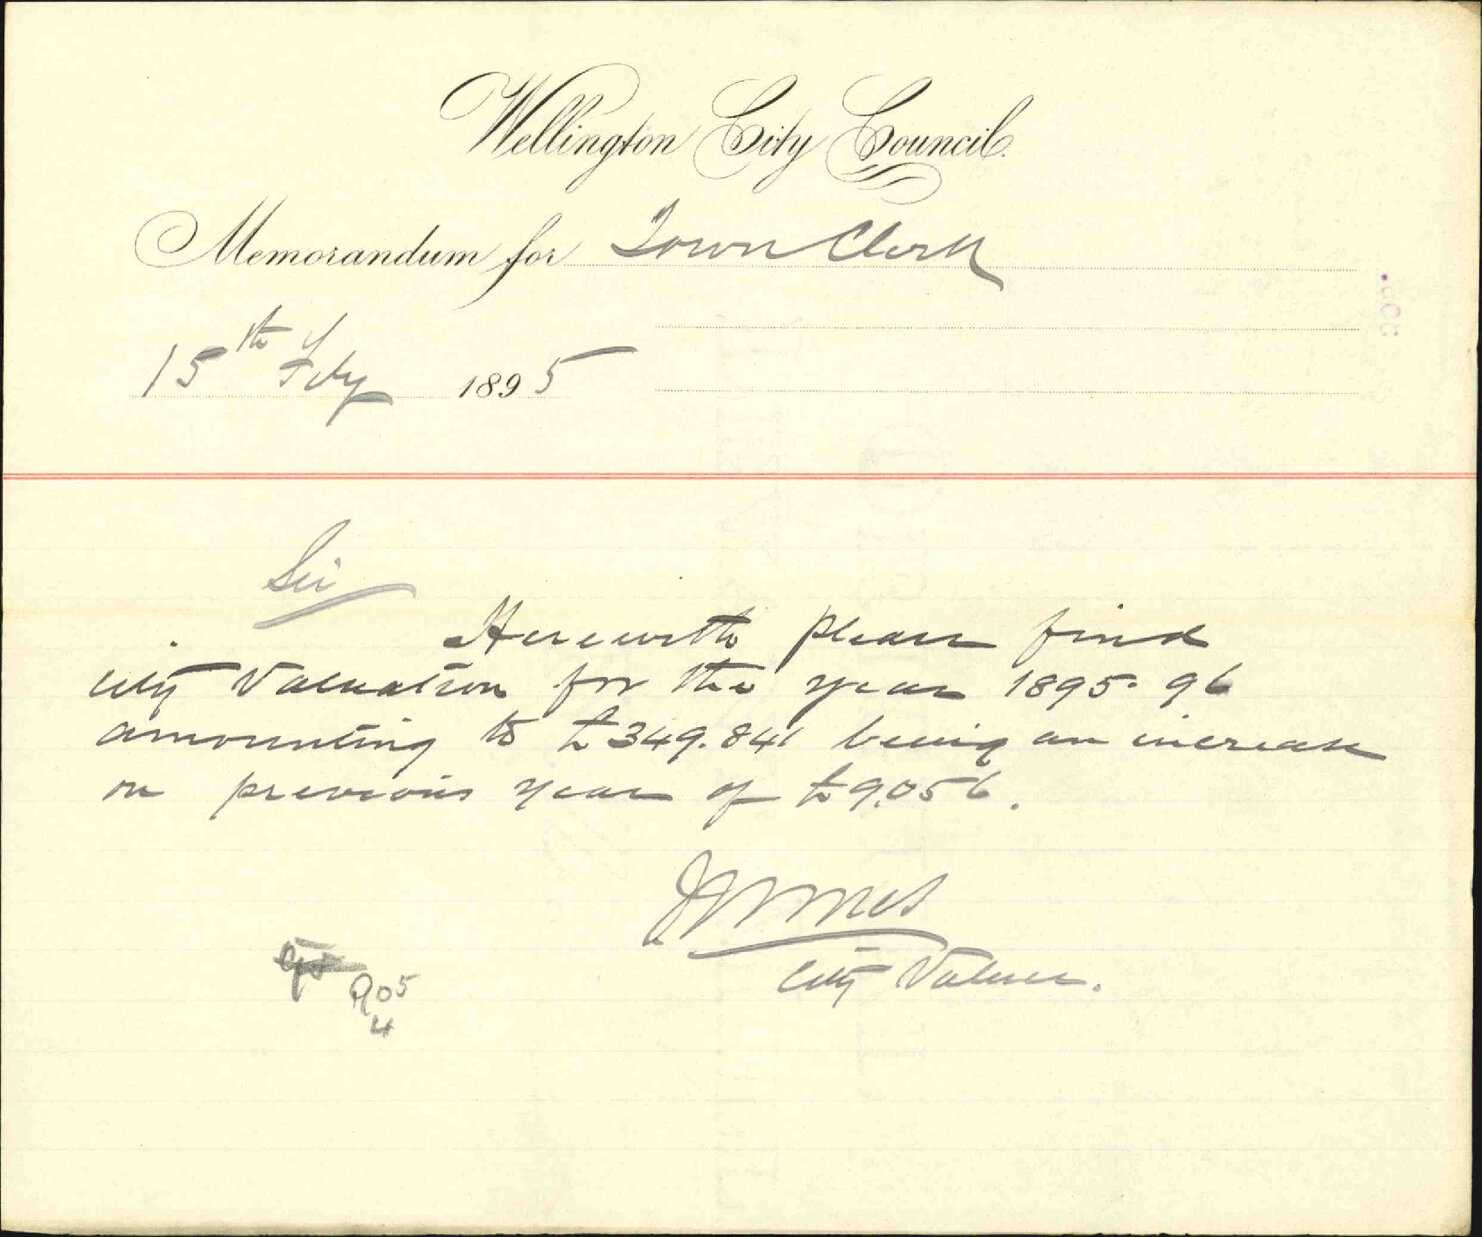 Wellington City Council.
Memorandum for Town Clerk
15th Feby 1895
Sir
Herewith please find
City Valuation for the year 1895.96
amounting to £349.841 being an increase
on previous year of £9,056.
City Valuer.
905
4